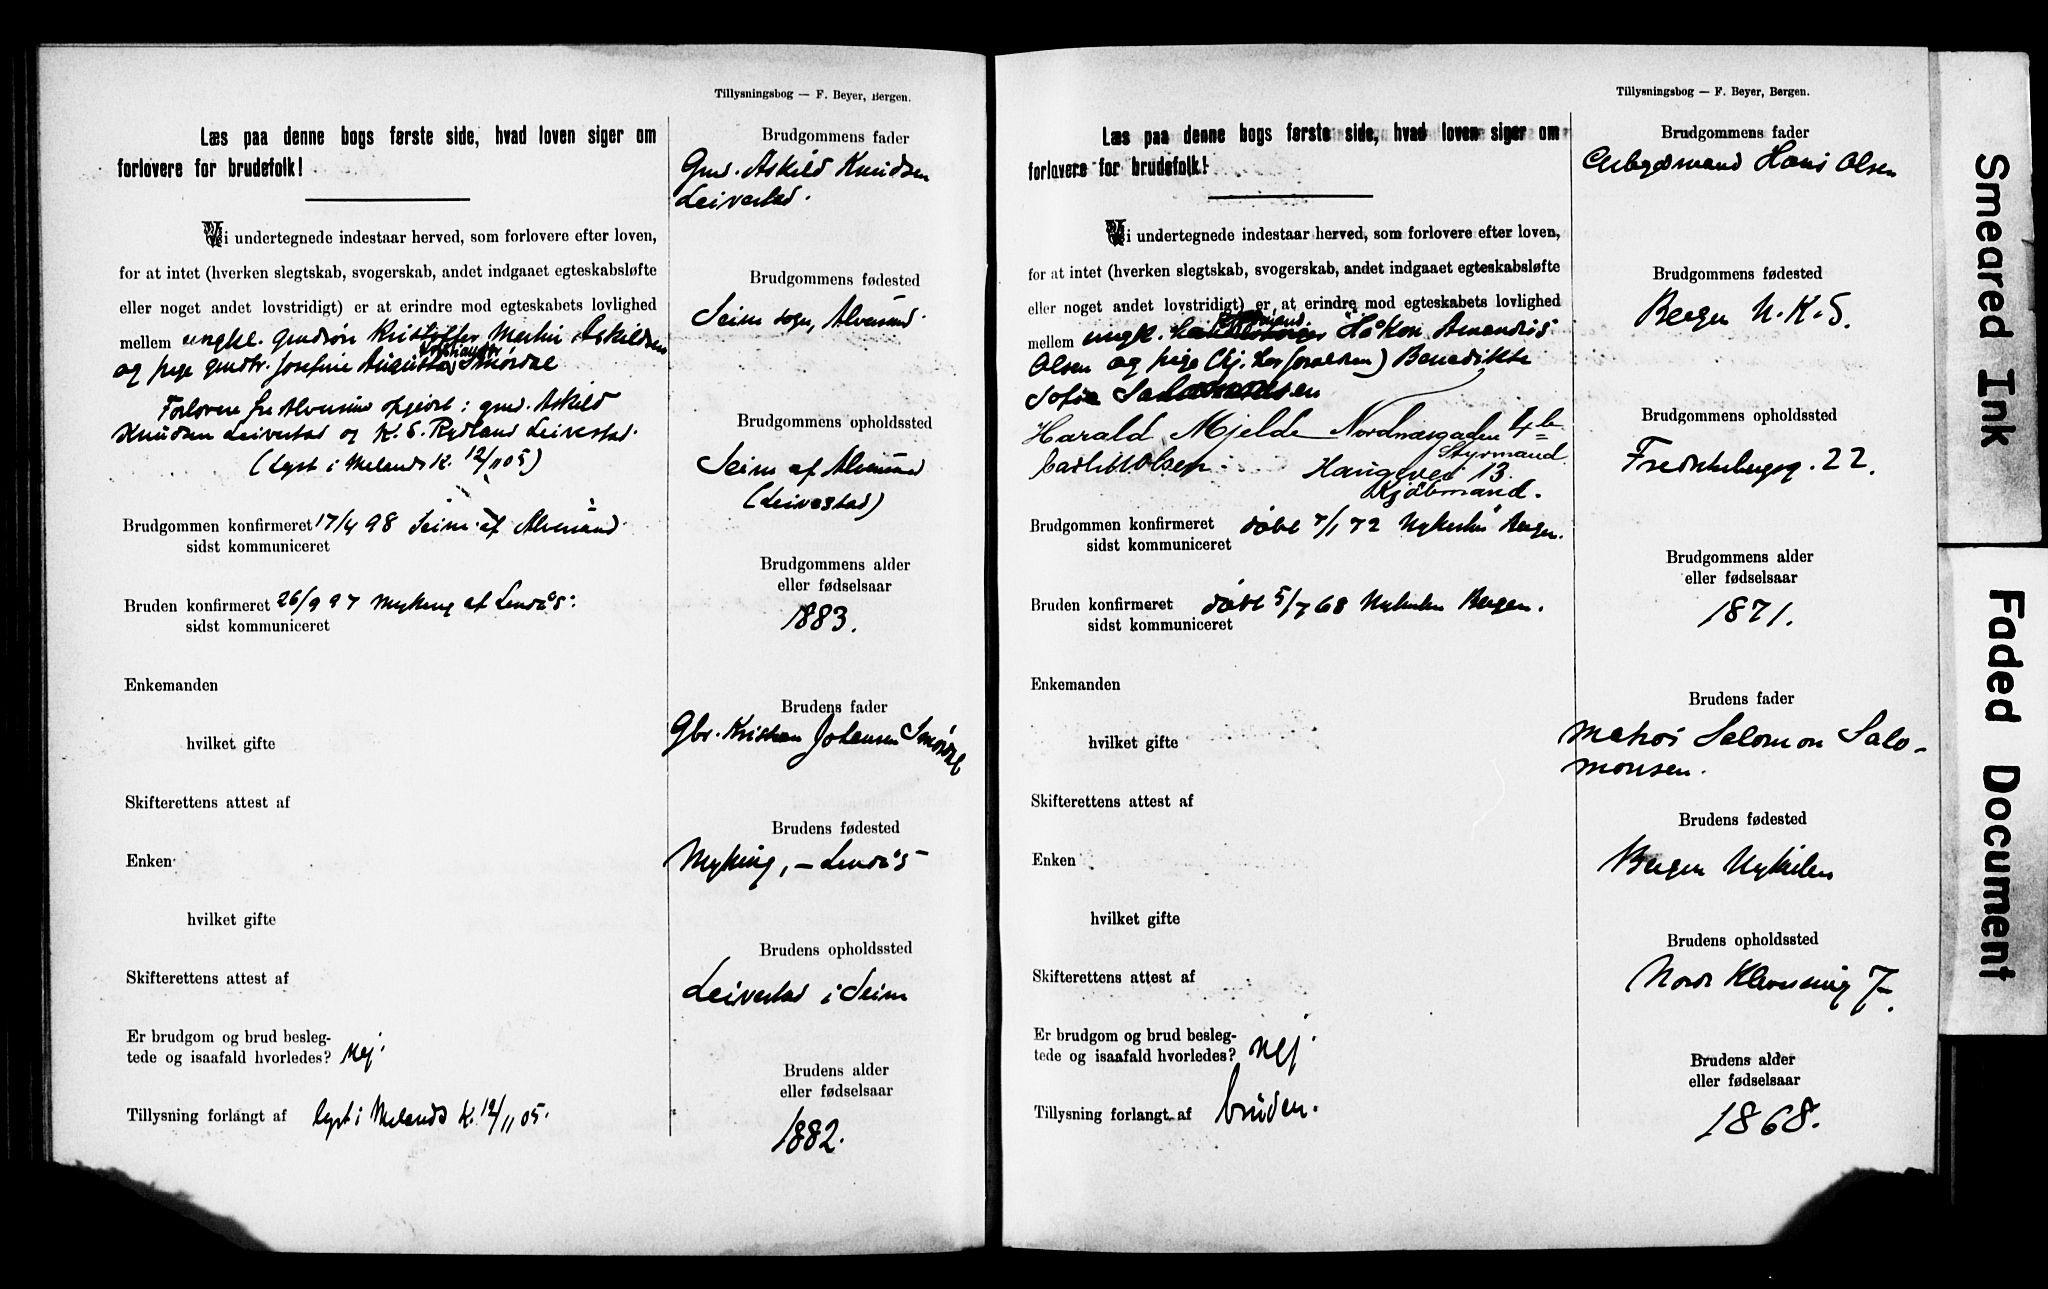 Tillysningsbog — F. Beyer, Bergen.
Læs paa denne bogs første side, hvad loven siger om
forlovere for brudefolk!
Vi undertegnede indestaar herved, som forlovere efter loven,
for at intet (hverken slegtskab, svogerskab, andet indgaaet egteskabsløfte
eller noget andet lovstridigt) er at erindre mod egteskabets lovlighed
mellem ungkl. gmdsøn Kristoffer Martin Askildsen
og pige gmdtr. Josefine Augusta Smørdal
Forlovere fra Alversund opgivet: gmd. Askild
Knudsen Leivestad og K. S. Rydland Leivestad.
(Lyst i Melands K. 12/11 05)
Brudgommen konfirmeret 17/4 98 Seim af Alversund
sidst kommuniceret
Bruden konfirmeret 26/9 97 Myking af Lindås.
sidst kommuniceret
Enkemanden
hvilket gifte
Skifterettens attest af
Enken
hvilket gifte
Skifterettens attest af
Er brudgom og brud besleg-
tede og isaafald hvorledes? Nej.
Tillysning forlangt af lyst i Melands K. 12/11 05.
Brudgommens fader
Gmd. Askild Knudsen
Leivestad.
Brudgommens fødested
Seim sogn, Alversund.
Brudgommens opholdssted
Seim af Alversund
(Leivestad)
Brudgommens alder
eller fødselsaar
1883.
Brudens fader
Gbr. Kristian Johansen Smørdal
Brudens fødested
Myking, – Lindås –
Brudens opholdssted
Leivestad i Seim
Brudens alder
eller fødselsaar
1882.
Tillysningsbog — F. Beyer, Bergen.
Læs paa denne bogs første side, hvad loven siger om
forlovere for brudefolk!
Vi undertegnede indestaar herved, som forlovere efter loven,
for at intet (hverken slegtskab, svogerskab, andet indgaaet egteskabsløfte
eller noget andet lovstridigt) er at erindre mod egteskabets lovlighed
mellem ungk. Håkon Amandus
Olsen og pige Benedikte
Sofie Salomonsen
Harald Mjelde Nordnæsgaden 4b
Styrmand
Haugevei 13.
Kjøbmand.
Brudgommen konfirmeret døbt 7/1 72 Nykirken Bergen.
sidst kommuniceret
Bruden konfirmeret døbt 5/7 68 Nykirken Bergen.
sidst kommuniceret
Enkemanden
hvilket gifte
Skifterettens attest af
Enken
hvilket gifte
Skifterettens attest af
Er brudgom og brud besleg-
tede og isaafald hvorledes? Nej
Tillysning forlangt af bruden.
Brudgommens fader
Arbejdsmand Hans Olsen
Brudgommens fødested
Bergen N. K. S.
Brudgommens opholdssted
Fredriksbergsg. 22.
Brudgommens alder
eller fødselsaar
1871.
Brudens fader
Matros Salomon Salo-
monsen.
Brudens fødested
Bergen Nykirken
Brudens opholdssted
Nordr. 7.
Brudens alder
eller fødselsaar
1868.
Smeared Ink
Faded Document